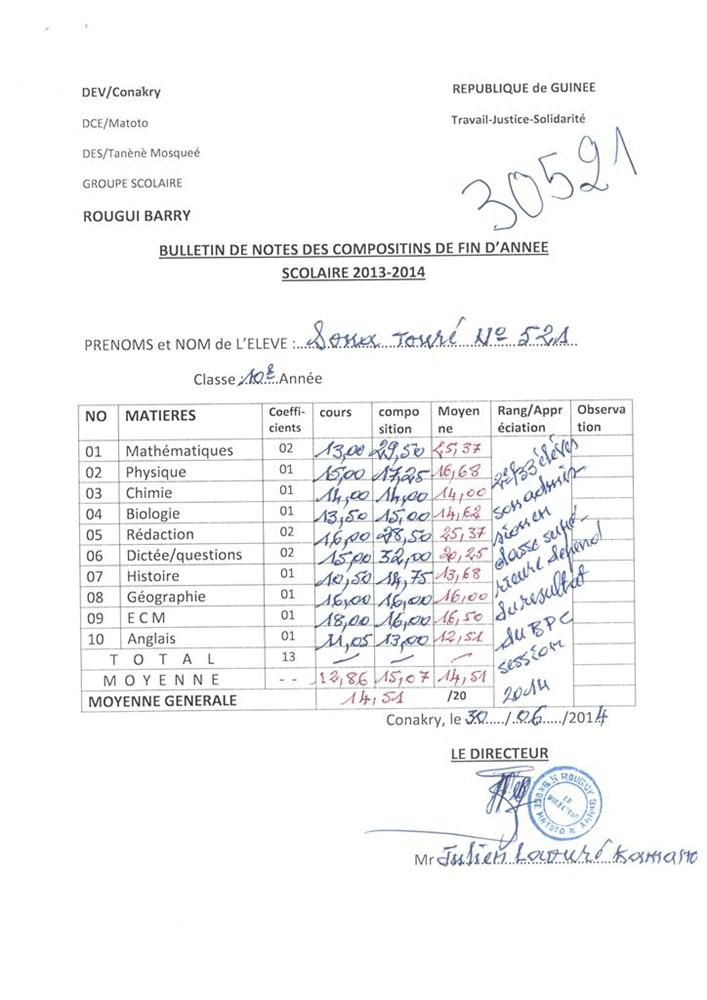 DEV/Conakry
REPUBLIQUE de GUINEE
DCE/Matoto
Travail-Justice-Solidarité
DES/Tanènè Mosqueé
GROUPE SCOLAIRE
30521
ROUGUI BARRY
BULLETIN DE NOTES DES COMPOSITINS DE FIN D'ANNEE
SCOLAIRE 2013-2014
PRENOMS et NOM de L'ELEVE : Touré N° 521
Classe : 10è Année
NO MATIERES Coeffi-cients cours compo sition Moyen ne Rang/Appr éciation Observa tion
01 Mathématiques 02 13,00 29,50 25,37
02 Physique 01 15,00 17,25 16,68
03 Chimie 01 14,00 14,00 14,00
04 Biologie 01 13,50 15,00 14,62
05 Rédaction 02 16,00 28,50 25,37
06 Dictée/questions 02 15,00 32,00
07 Histoire 01 10,50 14,75 13,68
08 Géographie 01 16,00 16,00 16,00
09 E C M 01 18,00 16,00 16,50
10 Anglais 01 11,05 13,00 12,51
T O T A L 13
M O Y E N N E - - 12,86 15,07 14,51
MOYENNE GENERALE 14,51 /20
2e/33 élèves
son admis-
sion en
classe supé-
rieure dépend
du resultat
du BPC
session
2014
Conakry, le 30 / 06 /2014
LE DIRECTEUR
LE DIRECTEUR
Mr Julien Kamano